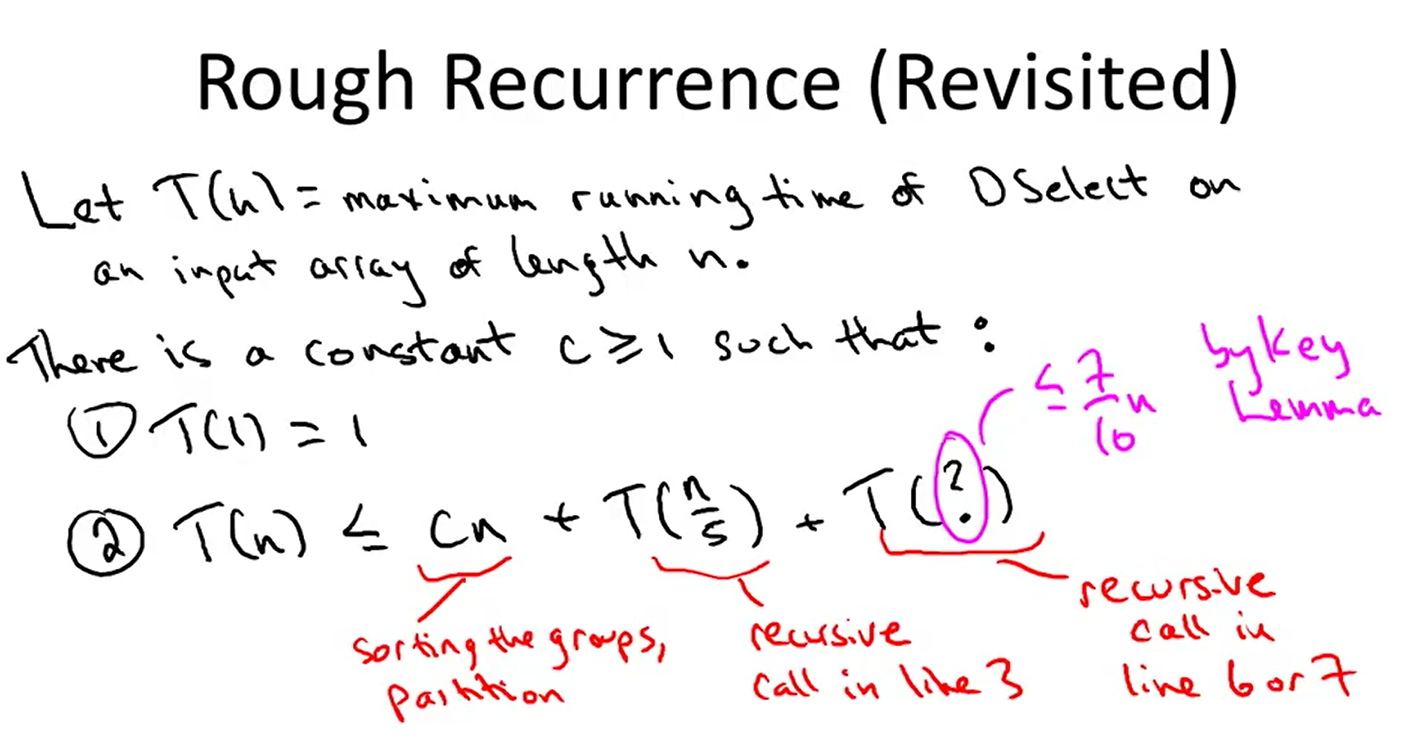 Rough Recurrence (Revisited)
Let T(n) = maximum running time of DSelect on
an input array of length n.
There is a constant c ≥ 1 such that :
① T(1) = 1
≤ 7/10 n by Key Lemma
② T(n) ≤ cn + T(n/5) + T(?)
sorting the groups, partition
recursive call in line 3
recursive call in line 6 or 7